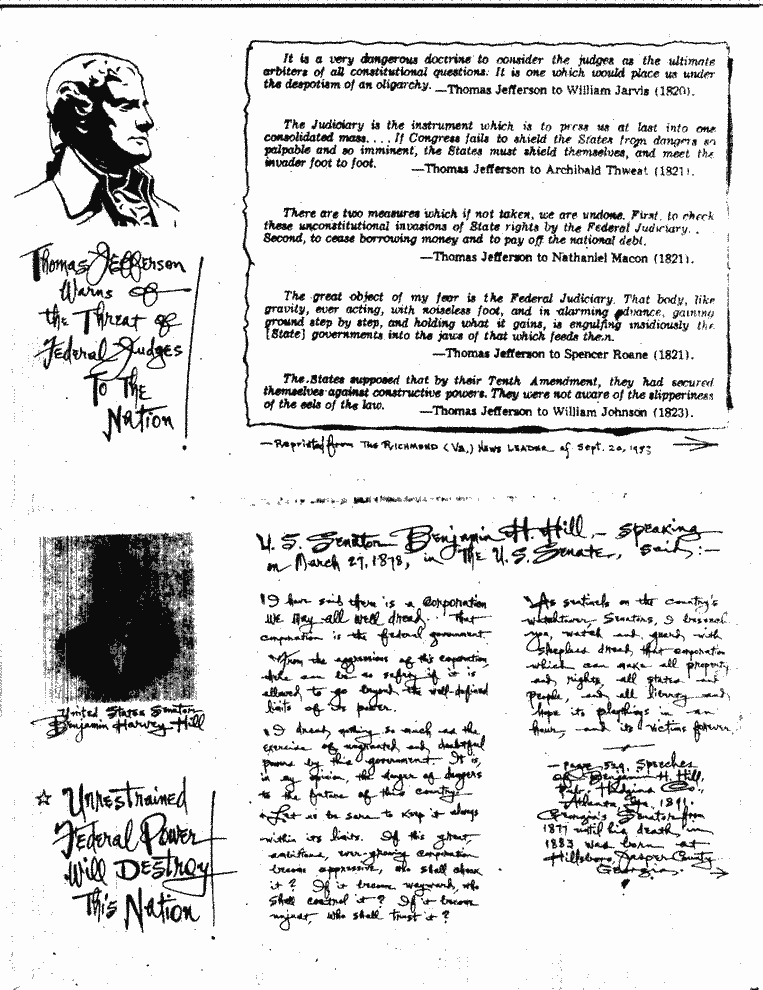 It is a very dangerous doctrine to consider the judges as the ultimate
arbiters of all constitutional questions: It is one which would place us under
the despotism of an oligarchy. —Thomas Jefferson to William Jarvis (1820).
The Judiciary is the instrument which is to press us at last into one
consolidated mass. . . . If Congress fails to shield the States from dangers so
palpable and so imminent, the States must shield themselves, and meet the
invader foot to foot.
—Thomas Jefferson to Archibald Thweat (1821).
There are two measures which if not taken, we are undone. First, to check
these unconstitutional invasions of State rights by the Federal Judiciary. .
Second, to cease borrowing money and to pay off the national debt.
—Thomas Jefferson to Nathaniel Macon (1821).
The great object of my fear is the Federal Judiciary. That body, like
gravity, ever acting, with noiseless foot, and in alarming advance, gaining
ground step by step, and holding what it gains, is engulfing insidiously the
[State] governments into the jaws of that which feeds them.
—Thomas Jefferson to Spencer Roane (1821).
The States supposed that by their Tenth Amendment, they had secured
themselves against constructive powers. They were not aware of the slipperiness
of the eels of the law.
—Thomas Jefferson to William Johnson (1823).
—Reprinted from THE RICHMOND (Va.) NEWS LEADER of Sept. 20, 1953
Thomas Jefferson
Warns of
the Threat of
Federal Judges
To The
Nation
U. S. Senator Benjamin H. Hill, — speaking
on March 27, 1878, in The U. S. Senate, said:—
I have said there is a corporation
we may all well dread. That
corporation is the federal government
From the aggressions of this corporation,
there can be no safety if it is
allowed to go beyond the well-defined
limits of its power.
I dread nothing so much as the
exercise of ungranted and doubtful
powers by this government. It is,
in my opinion, the danger of dangers
to the future of this country.
Let us be sure to keep it always
within its limits. If this great,
ambitious, ever-growing corporation
become oppressive, who shall check
it? If it become wayward, who
shall control it? If it become
unjust, who shall trust it?
As sentinels on the country's
watchtower, Senators, I beseech
you, watch and guard with
sleepless dread, that corporation
which can make all property
and rights, all states and
people, and all liberty and
hope its playthings in an
hour, and its victims forever.
— Page 529, Speeches
of Benjamin H. Hill,
Pub. Hodgins Co.,
Atlanta, Ga., 1891.
Georgia's Senator from
1877 until his death in
1883 was born at
Hillsboro, Jasper County
Georgia.
United States Senator
Benjamin Harvey Hill
☆ Unrestrained
Federal Power
Will Destroy
This Nation